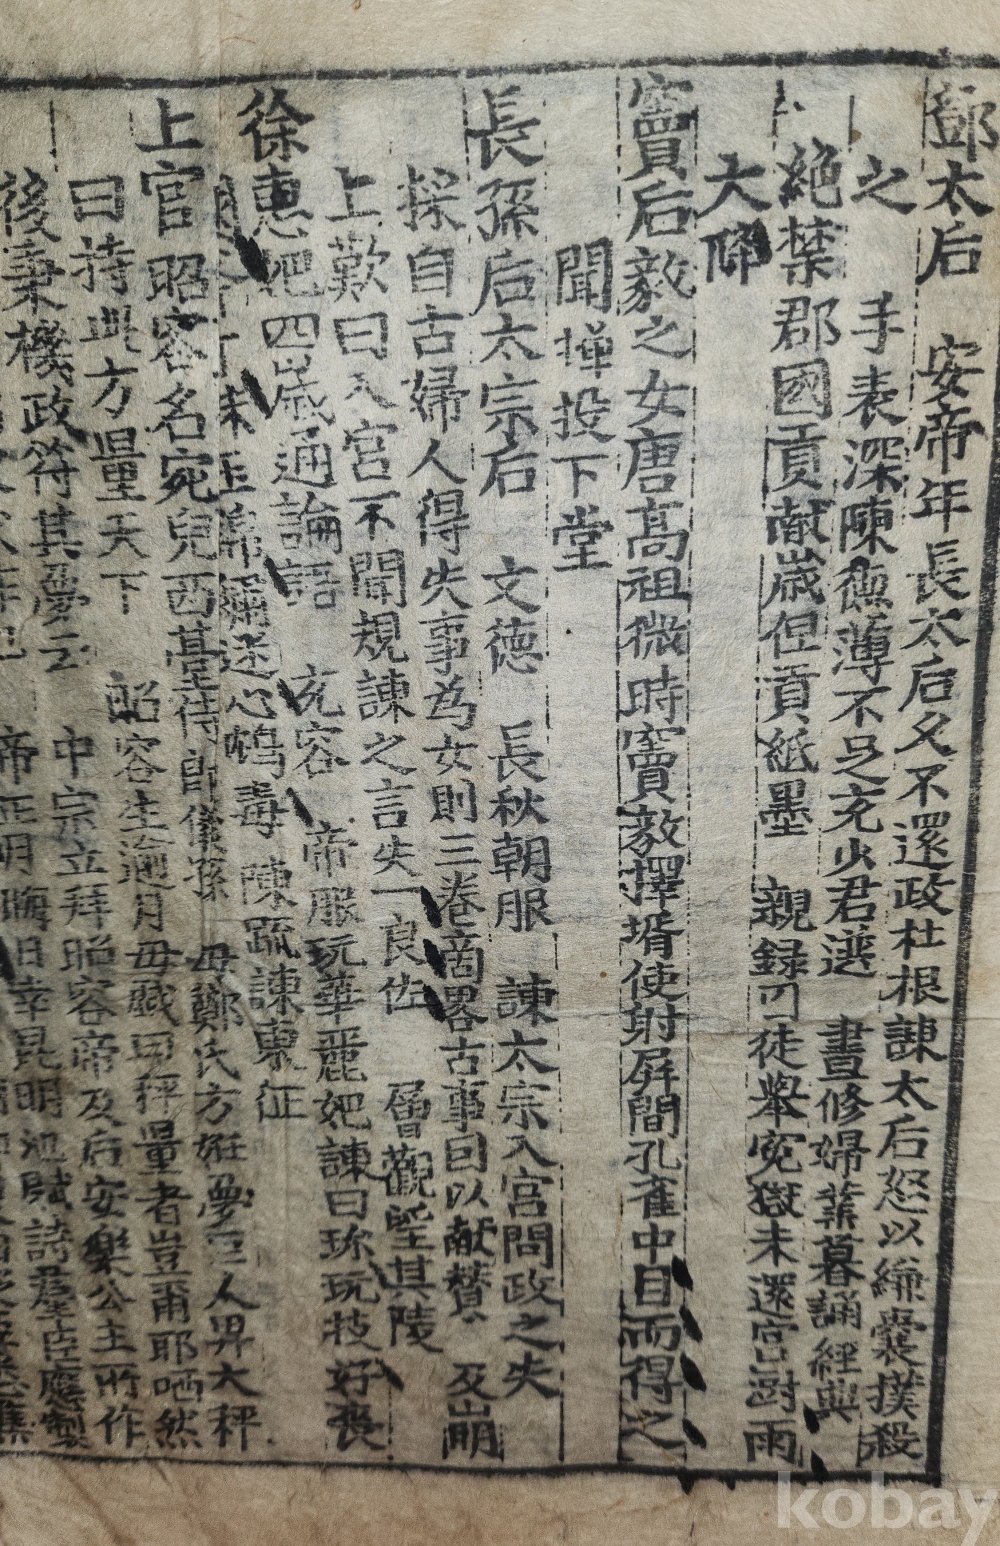 鄧太后 安帝年長太后久不還政杜根諫太后怒以縑囊撲殺
之 手表深陳德薄不足充少君選 晝修婦業暮誦經典
絶禁郡國貢献歲但貢紙墨 親録囚徒擧寃獄未還宮澍雨
大降
竇后毅之女唐髙祖微時竇毅擇壻使射屛間孔雀中目而得之
聞 投下堂
長孫后太宗后 文德 長秋朝服 諫太宗入宫問政之失
採自古婦人得失事為女則三卷 畧古事目以献賛 及崩
上歎曰入宮不聞規諫之言失一良佐 層觀望其陵
徐惠妃四歲通論語 充容 帝服玩華麗妃諫曰珎玩技好喪
心鴆毒 陳䟽諫東征
上官昭容名宛兒西臺侍郎儀孫 母鄭氏方姙夢巨人畀大秤
曰持此方量天下 昭容生逾月母戯曰秤量者豈甭耶哂然
後秉機政符其夢云 中宗立拜昭容帝及后安樂公主所作
帝正月晦日幸昆明池賦詩羣臣應製